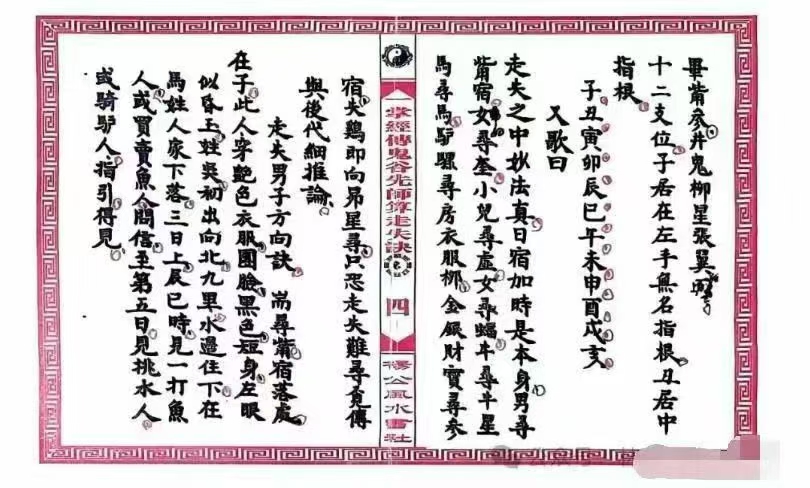 畢觜參井鬼柳星張翼軫
十二支位子居在左手無名指根丑居中
指根
子丑寅卯辰巳午未申酉戌亥
又歌曰
走失之中妙法真日宿加時是本身男尋
觜宿女尋奎小兒尋虛女尋蝠牛尋牛星
馬尋馬驴騾尋房衣服柳金銀財寶尋參
掌經傳鬼谷先師算走失訣
四
楊公風水書社
宿失鷄即向昴星尋只恐走失難尋覓傳
與後代細推論
走失男子方向訣 耑尋觜宿落處
在子此人穿艷色衣服團臉黑色短身左眼
似昏玉姓吳初出向北九里水邊住下在
馬姓人家下落三日上辰巳時見一打魚
人或買賣魚人問信至第五日見挑水人
或騎驴人指引得見
公众号